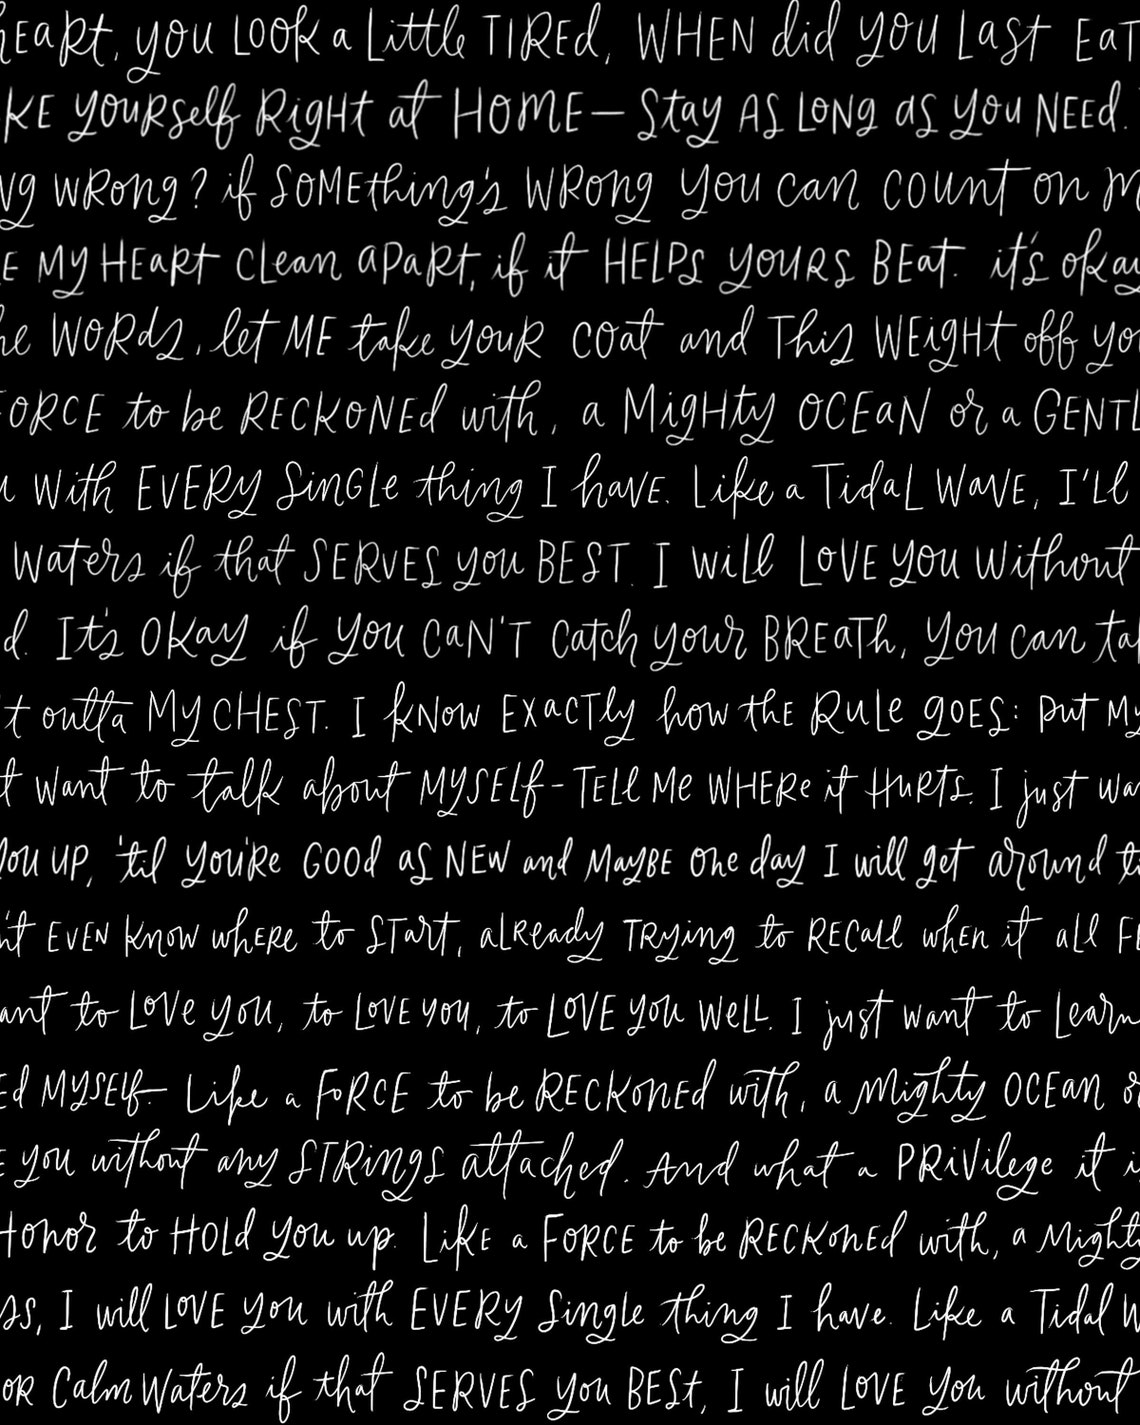 heart, you look a little tired, when did you last eat
ke yourself right at home — stay as long as you need.
ng wrong? if something's wrong you can count on m
e my heart clean apart, if it helps yours beat. it's okay
he words, let me take your coat and this weight off yo
force to be reckoned with, a mighty ocean or a gentl
u with every single thing I have. Like a tidal wave, I'll
waters if that serves you best. I will love you without
d. It's okay if you can't catch your breath, you can ta
t outta my chest. I know exactly how the rule goes: put my
t want to talk about myself - tell me where it hurts. I just wa
you up, 'til you're good as new and maybe one day I will get around t
n't even know where to start, already trying to recall when it all f
ant to love you, to love you, to love you well. I just want to learn
ed myself. Like a force to be reckoned with, a mighty ocean o
e you without any strings attached. And what a privilege it i
Honor to hold you up. Like a force to be reckoned with, a mighty
ss, I will love you with every single thing I have. Like a tidal w
or calm waters if that serves you best, I will love you without